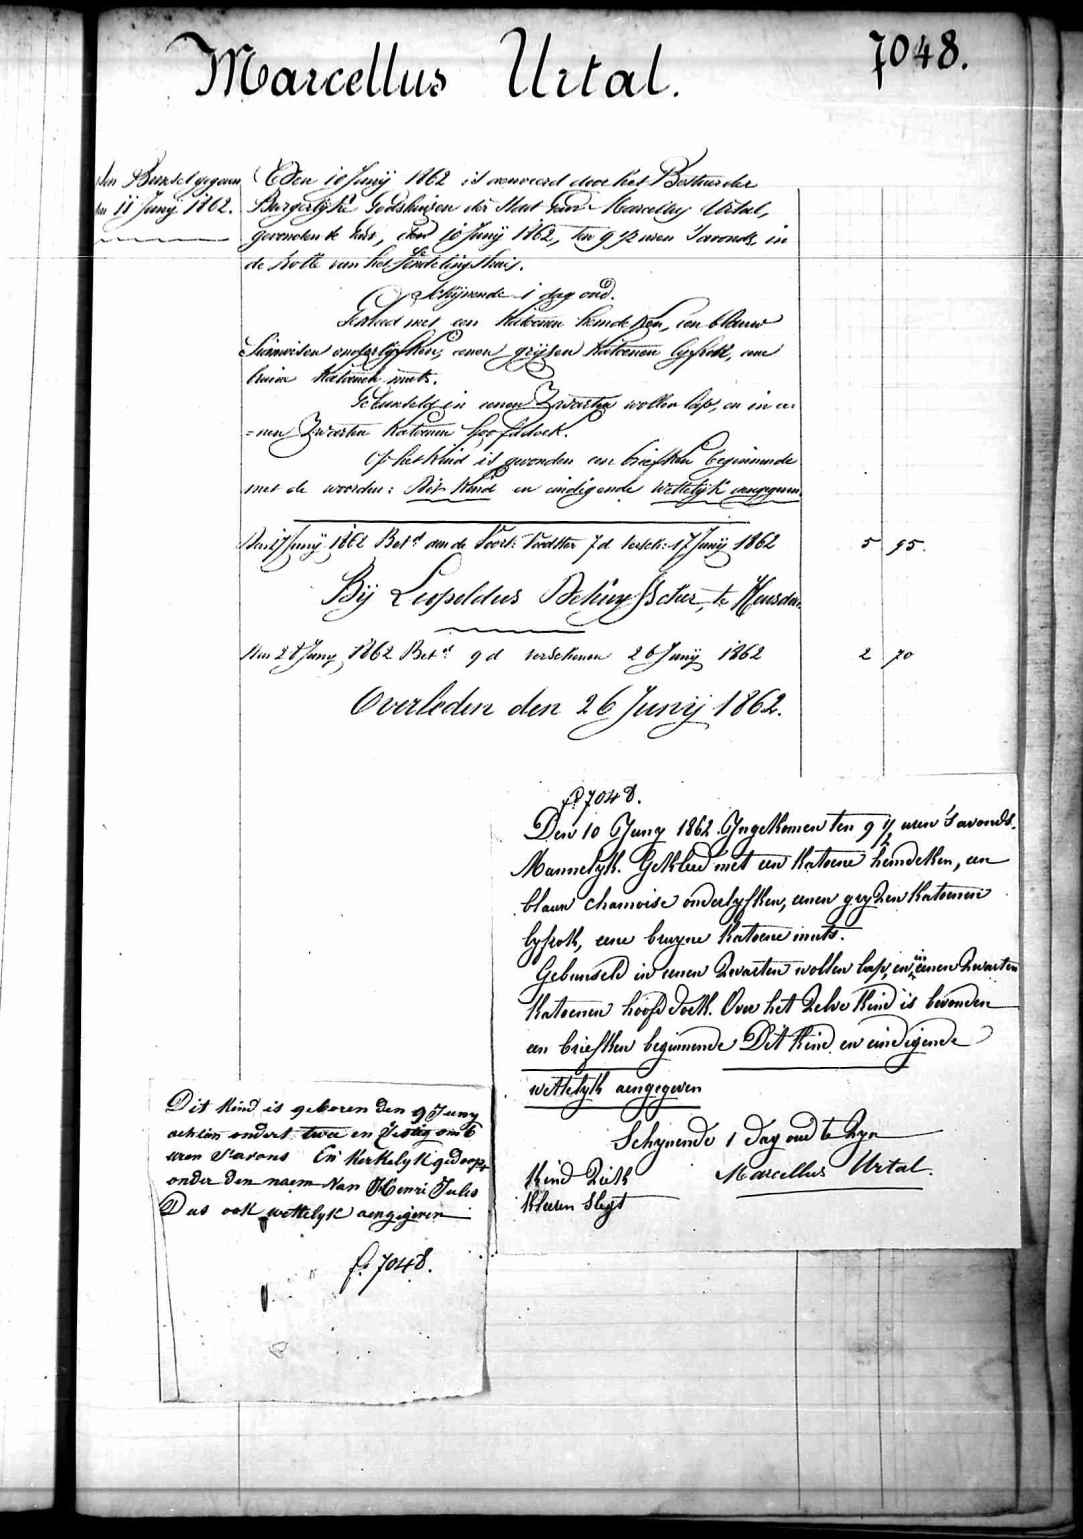 Marcellus Urtal.
7048.
den Bunsel gegeven
den 11 Junij 1862.
Den 10 Junij 1862 is aenveerd door het Bestuur der
Burgerlijke Godshuizen der Stad Gend Marcellus Urtal,
gevonden te hier, den 10 Junij 1862, ten 9 ½ uren s'avonds, in
de rolle van het Vondelingshuis.
Schijnende 1 dag oud.
Gekleed met een katoenen hemdeken, een blauw
chamoisen onderlijfken, eenen grijsen katoenen lijfrok, eene
bruine katoenen muts.
Gebunseld in eenen zwarten wollen lap, en in ee-
=nen zwarten katoenen hoofddoek.
Op het kind is gevonden een briefken beginnende
met de woorden: Dit kind en eindigende wettelijk aengegeven
Den 17 Junij 1862 Betd aen de Voedster 7 d versch: 17 Junij 1862 5 95.
Bij Leopoldus te Heusden
Den 28 Junij 1862 Betd 9 d verschenen 26 Junij 1862 2 70
Overleden den 26 Junij 1862.
fo 7048.
Den 10 Juny 1862 Ingekomen ten 9 ½ uren s'avonds.
Mannelyk. Gekleed met een katoene hemdeken, een
blauw chamoise onderlyfken, eenen gryzen katoenen
lyfrok, eene bruyne katoene muts.
Gebunseld in eenen zwarten wollen lap, en in eenen zwarten
katoenen hoofddoek. Over het zelve kind is bevonden
een briefken beginnende Dit kind en eindigende
wettelyk aengegeven
Schynende 1 dag oud te zyn
Kind Ziek Marcellus Urtal.
Kleeren slegt
Dit kind is geboren den 9 Juny
achtien ondert twee en zestig om 6
uren s'avons En kerkelyk gedoopt
onder den naem Van Henri Jules
Dus ook wettelyk aengegeven
fo 7048.